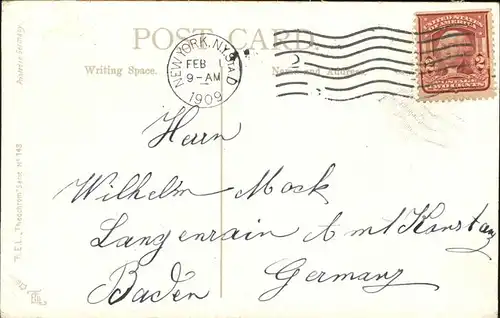 POST CARD.
Writing Space.
Name and Address
NEW YORK, N.Y. STA D
FEB 1
9-AM
1909
2
UNITED STATES
OF AMERICA
2 2
POSTAGE
TWO CENTS
Herrn
Wilhelm Mock
Langenrain Amt Konstanz
Baden Germany
"Theochrom" Serie No 148